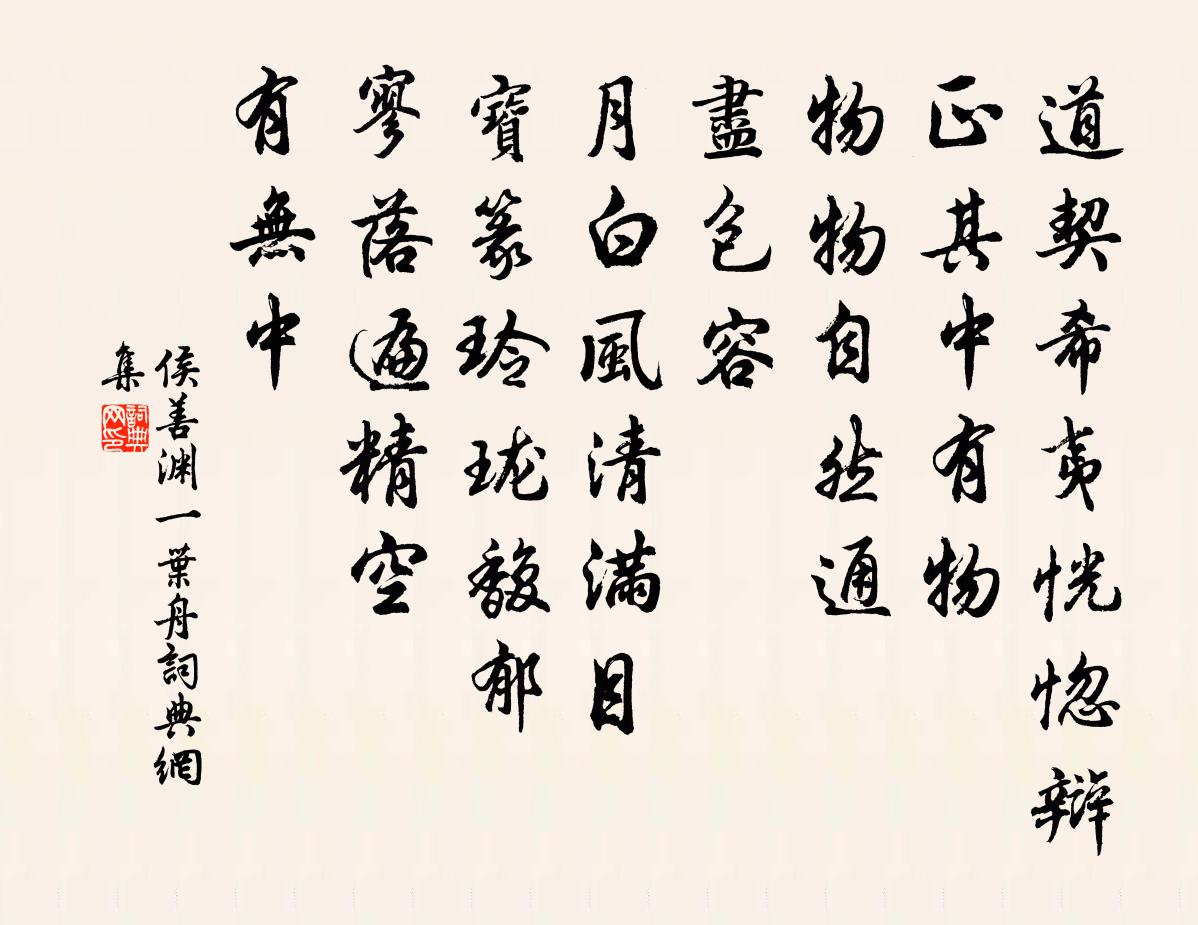 道契希夷恍惚辯
正其中有物
物物自然通
盡包容
月白風清滿目
寶篆玲瓏馥郁
寥落遍精空
有無中
侯善渊一葉舟詞典網
集
詞典
网印